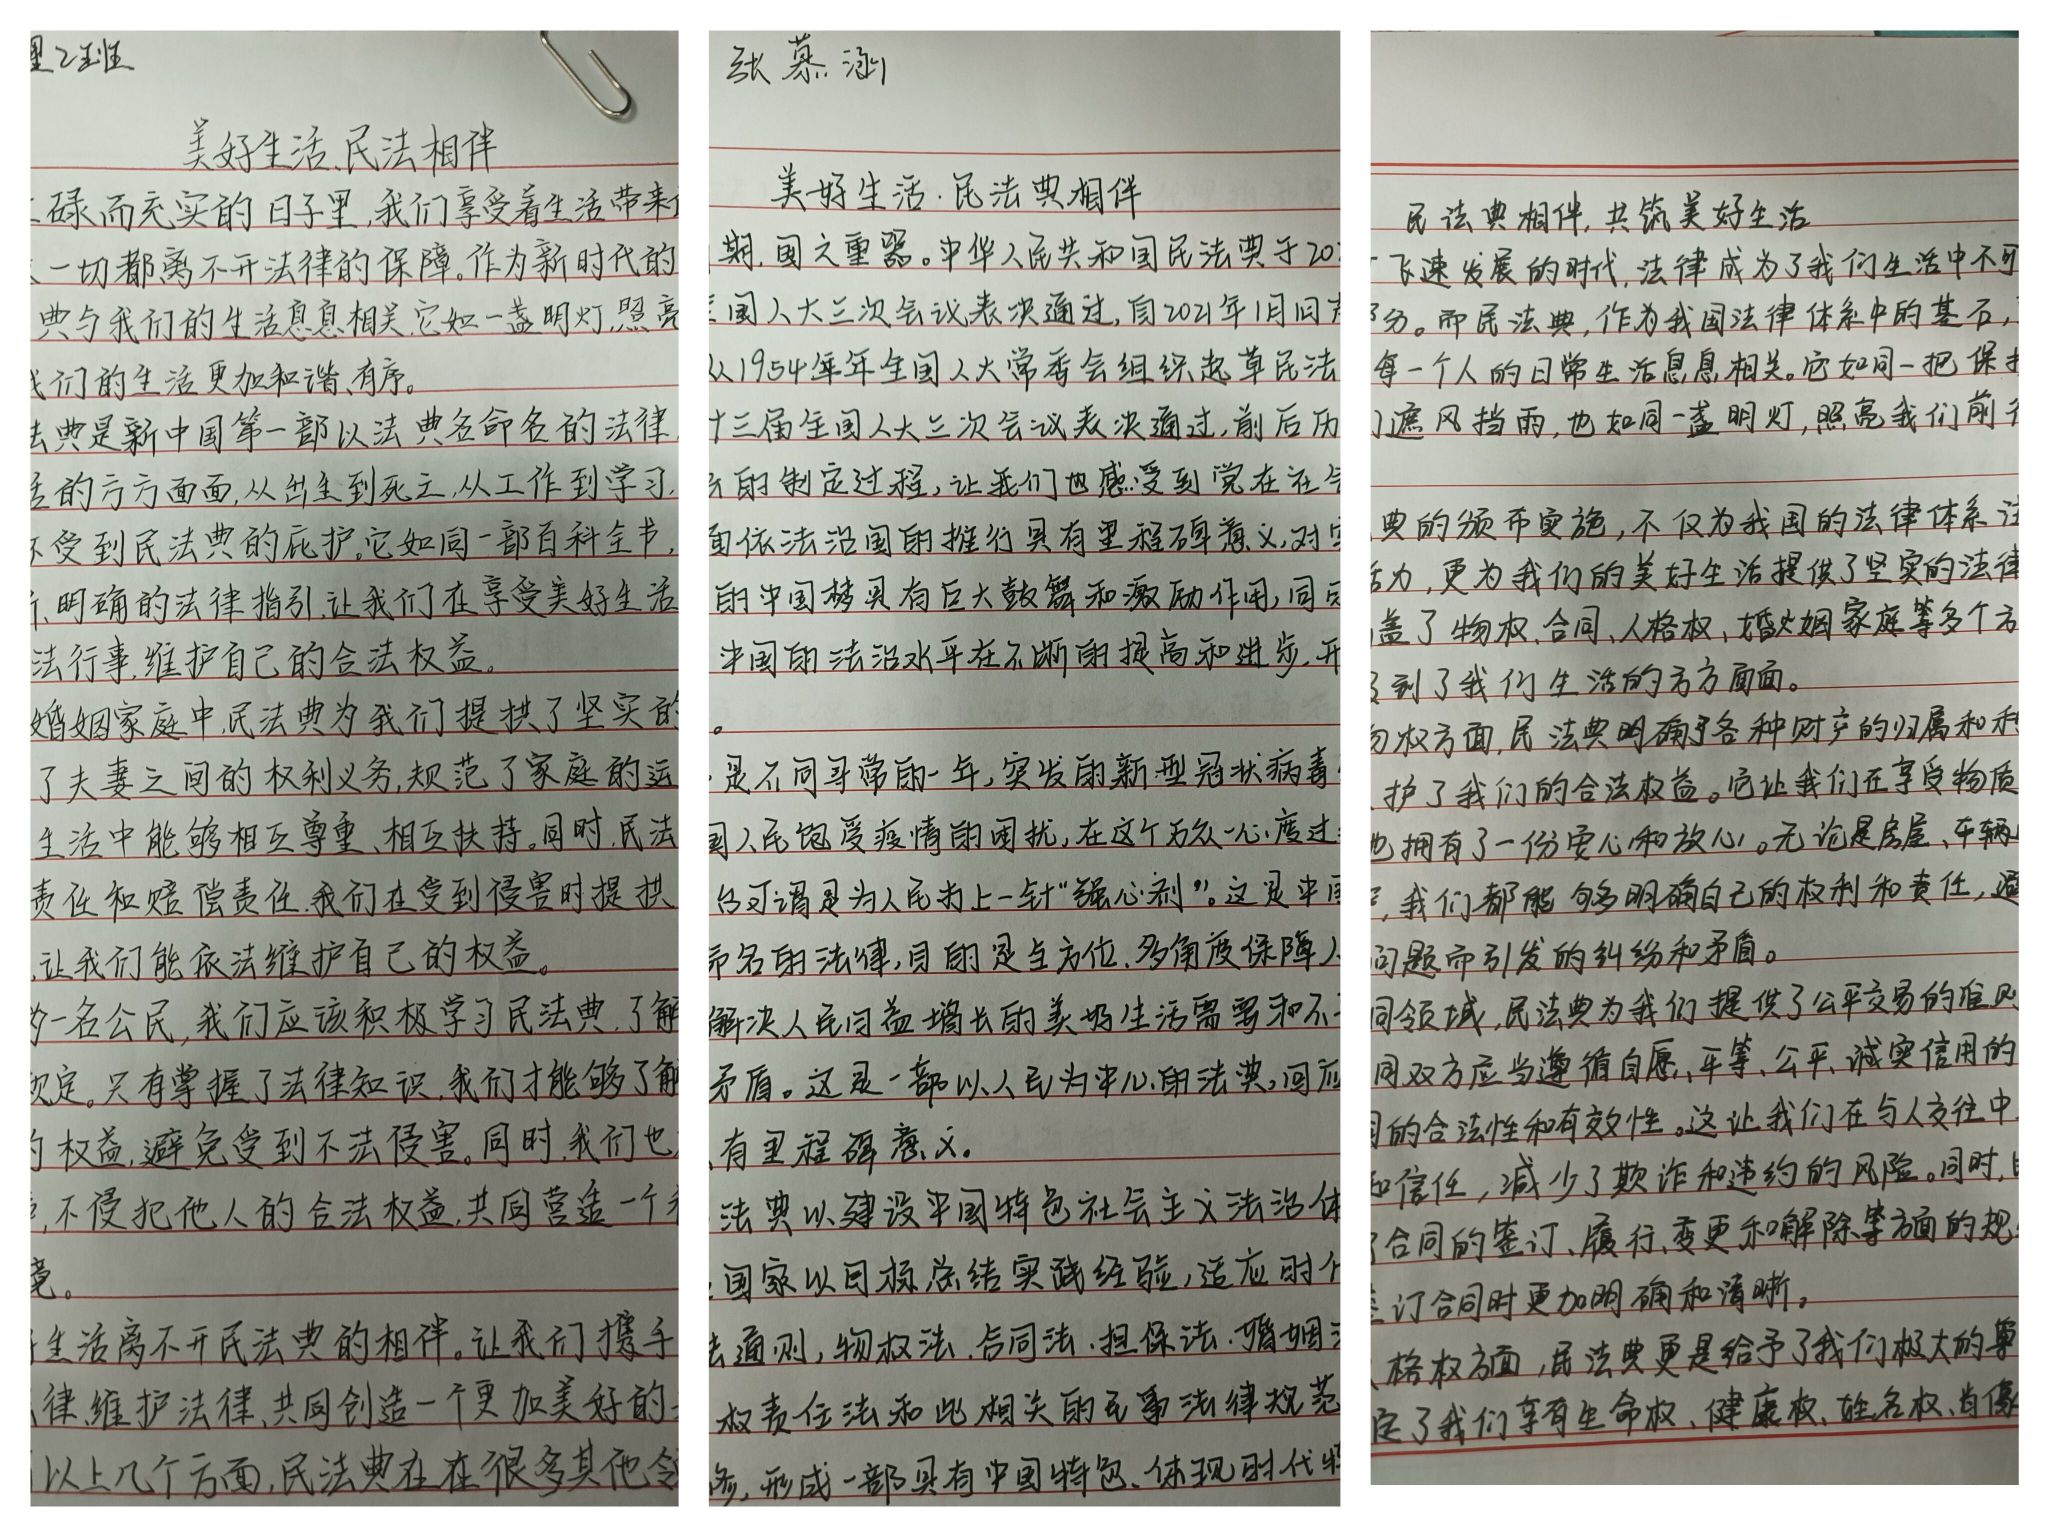 理2班
美好生活、民法相伴
碌而充实的日子里,我们享受着生活带来
一切都离不开法律的保障。作为新时代的
典与我们的生活息息相关,它如一盏明灯,照亮
我们的生活更加和谐、有序。
法典是新中国第一部以法典名命名的法律,
活的方方面面,从出生到死亡,从工作到学习,
不受到民法典的庇护。它如同一部百科全书,
、明确的法律指引,让我们在享受美好生活
法行事,维护自己的合法权益。
婚姻家庭中,民法典为我们提拱了坚实的
了夫妻之间的权利义务,规范了家庭的运
生活中能够相互尊重、相互扶持。同时,民法
责任和赔偿责任,我们在受到侵害时提拱
,让我们能依法维护自己的权益。
为一名公民,我们应该积极学习民法典,了解
规定。只有掌握了法律知识,我们才能够了解
的权益,避免受到不法侵害。同时,我们也
,不侵犯他人的合法权益,共同营造一个和
境。
好生活离不开民法典的相伴。让我们携手
律,维护法律,共同创造一个更加美好的
以上几个方面,民法典在在很多其他领
张慕涵
美好生活·民法典相伴
期,国之重器。中华人民共和国民法典于20
全国人大三次会议表决通过,自2021年1月1日
从1954年年全国人大常委会组织起草民法
十三届全国人大三次会议表决通过,前后历
的制定过程,让我们也感受到党在社会
面依法治国的推行具有里程碑意义,对
的中国梦具有巨大鼓舞和激励作用,同
中国的法治水平在不断的提高和进步,开
。
是不同寻常的一年,突发的新型冠状病毒
国人民饱受疫情的困扰,在这个万众一心度过
台可谓是为人民打上一针“强心剂”。这是中国
命名的法律,目的是全方位、多角度保障人
解决人民日益增长的美好生活需要和不
矛盾。这是一部以人民为中心的法典,回应
有里程碑意义。
法典以建设中国特色社会主义法治体
国家以目标,总结实践经验,适应时代
法通则,物权法、合同法、担保法、婚姻法
权责任法和此相关的民事法律规范
修,形成一部具有中国特色、体现时代特
民法典相伴,共筑美好生活
飞速发展的时代,法律成为了我们生活中不可
部分。而民法典,作为我国法律体系中的基石,
每一个人的日常生活息息相关。它如同一把保护
们遮风挡雨,也如同一盏明灯,照亮我们前行
典的颁布实施,不仅为我国的法律体系注
活力,更为我们的美好生活提供了坚实的法律
盖了物权、合同、人格权、婚姻家庭等多个方
到了我们生活的方方面面。
物权方面,民法典明确了各种财产的归属和利
护了我们的合法权益。它让我们在享受物质
也拥有了一份安心和放心。无论是房屋、车辆
,我们都能够明确自己的权利和责任,避
问题而引发的纠纷和矛盾。
同领域,民法典为我们提供了公平交易的准则
同双方应当遵循自愿、平等、公平、诚实信用的
同的合法性和有效性。这让我们在与人交往中
和信任,减少了欺诈和违约的风险。同时,民
了合同的签订、履行、变更和解除等方面的规
签订合同时更加明确和清晰。
人格权方面,民法典更是给予了我们极大的尊
定了我们享有生命权、健康权、姓名权、肖像